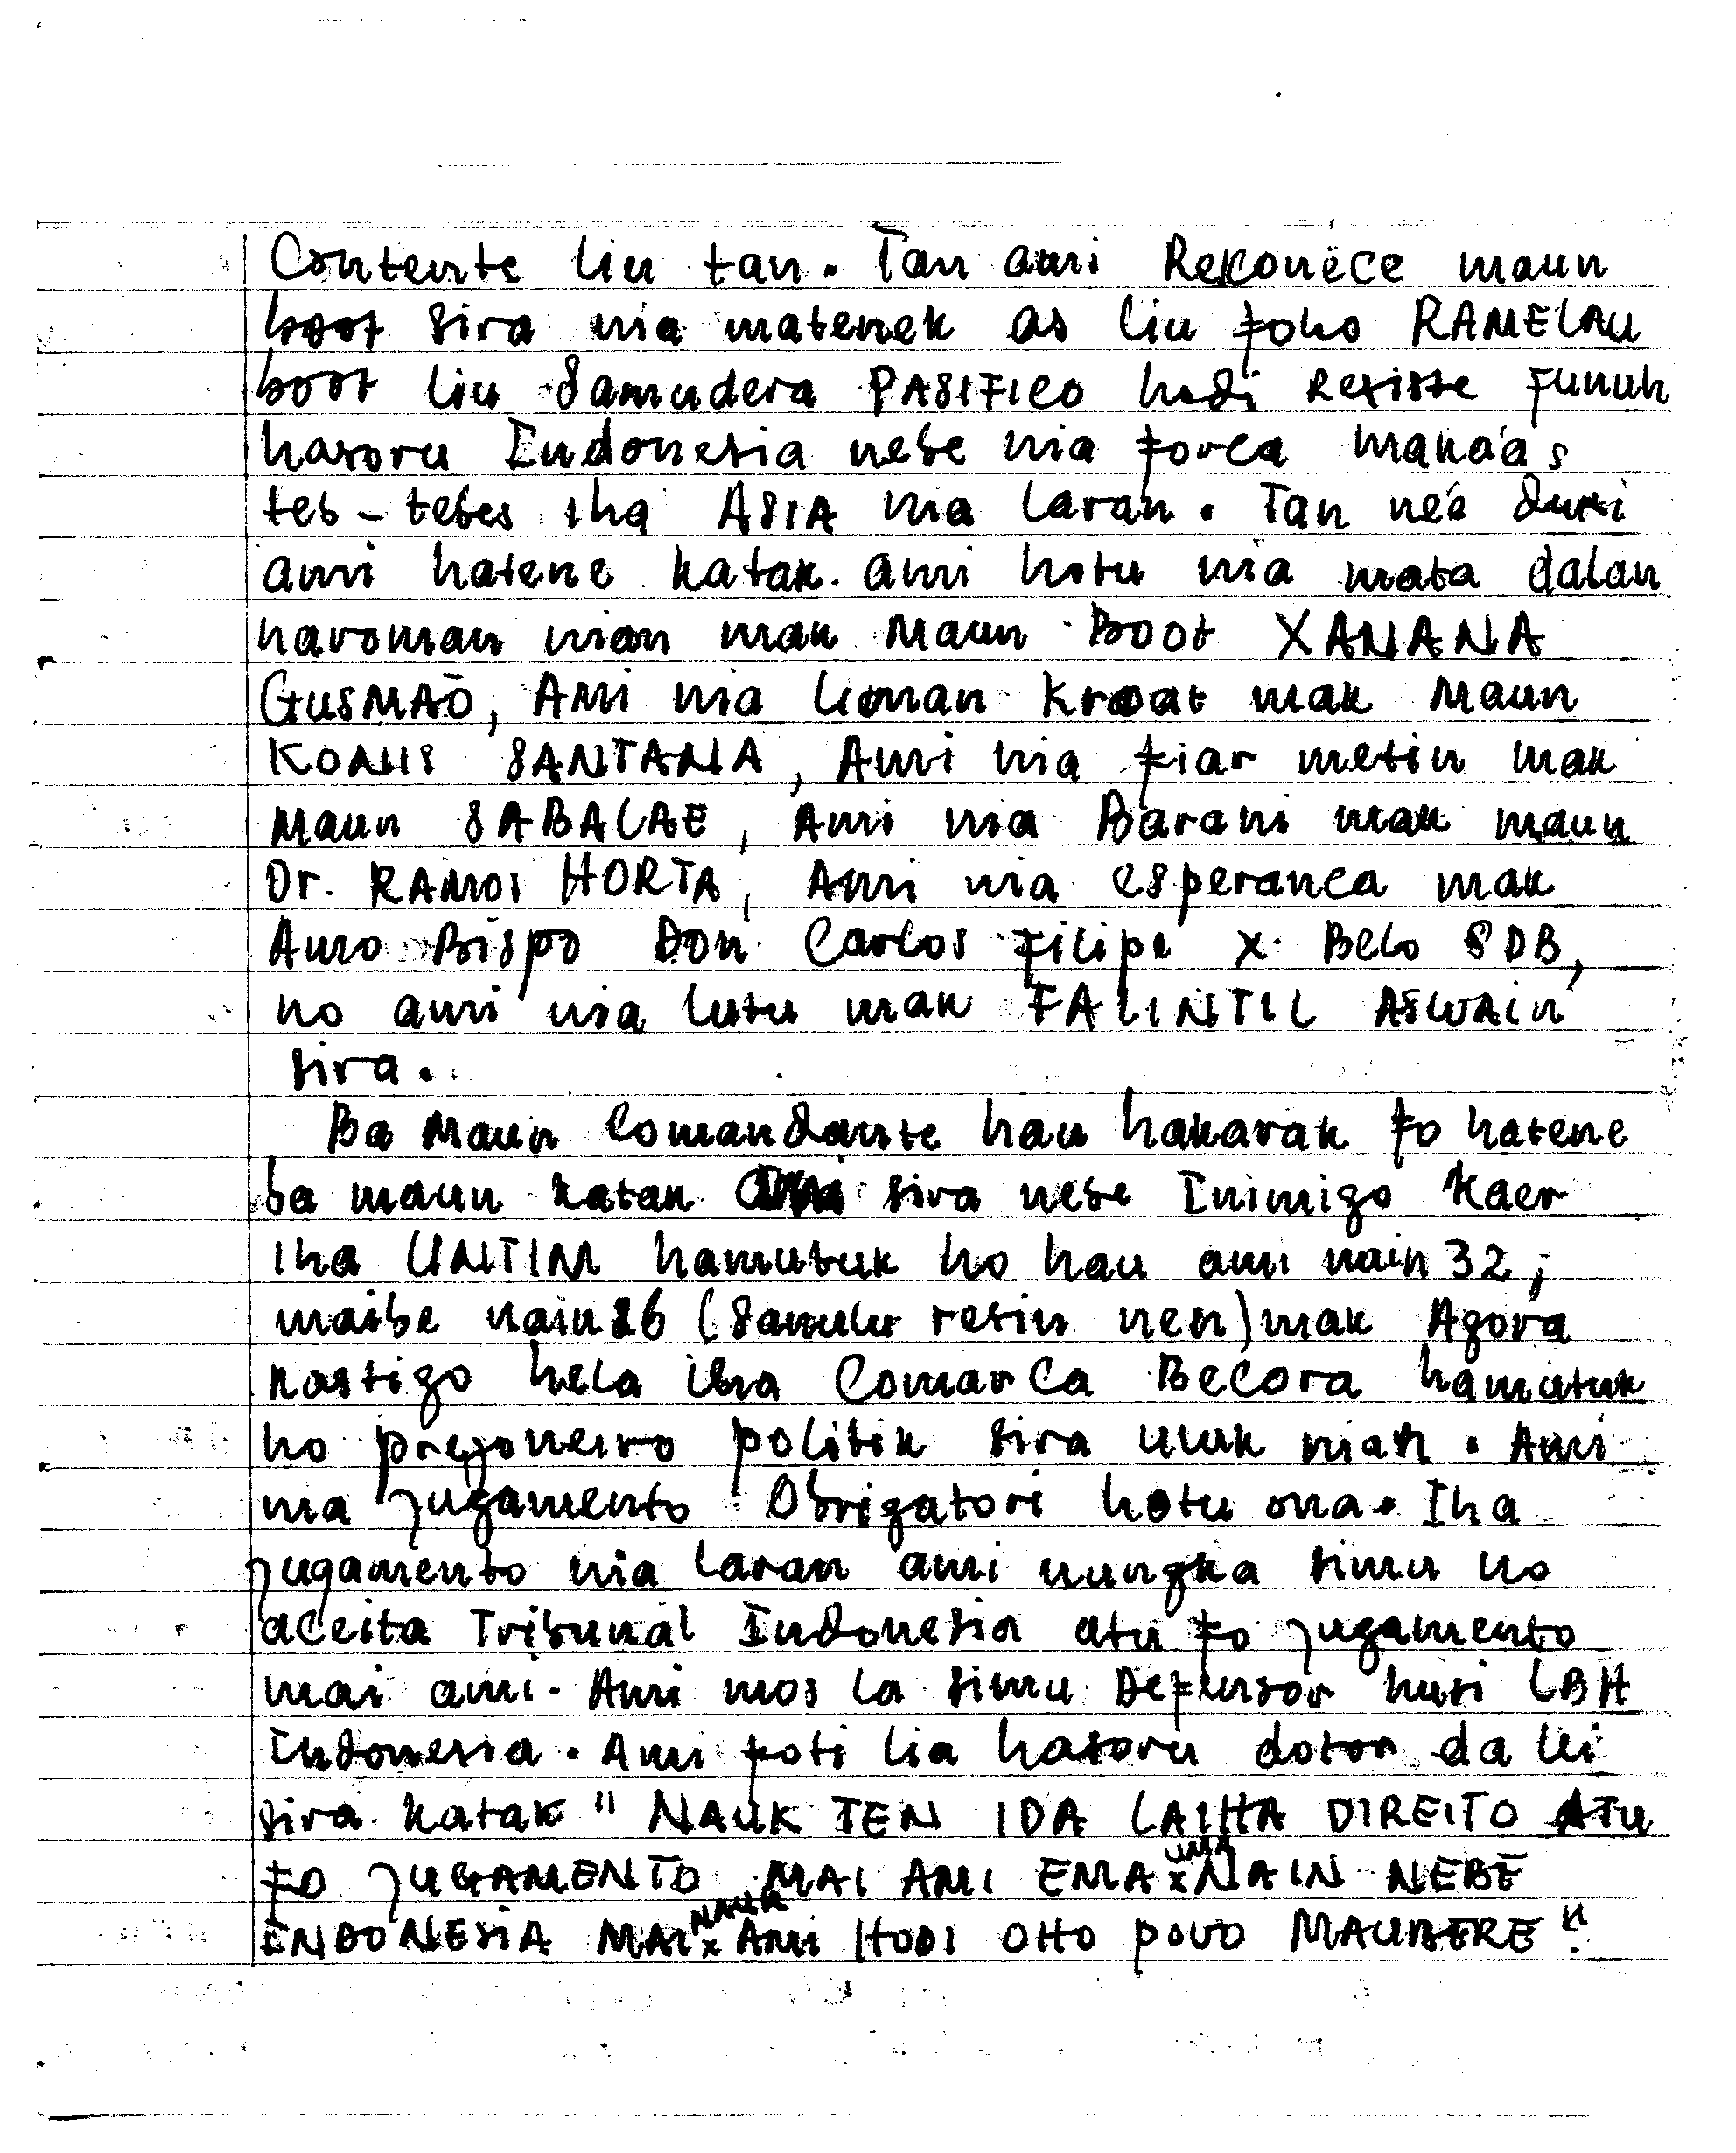 Contente liu tan. Tan ami Rekonece maun
boot sira nia matenek as liu foho RAMELAU
boot liu Samudera PASIFICO hodi Resiste Funuh
hasoru Indonesia nebe nia forca makaás
teb-tebes iha ASIA nia laran. Tan neé duni
ami hatene katak. ami hotu nia mata dalan
naroman nian mak Maun Boot XANANA
GUSMAÕ, AMi nia liman Kroat mak Maun
KONIS SANTANA, Ami nia fiar metin mak
Maun SABALAE, Ami nia Barani mak maun
Dr. RAMOS HORTA, Ami nia esperanca mak
Amo Bispo Don Carlos Filipe X. Belo SDB,
no ami nia lutu mak FALINTIL ASWAIN
sira.
Ba Maun Comandante hau hakarak fo hatene
ba maun katak Ami sira nebe Inimigo Kaer
Iha UNTIM hamutuk ho hau ami nain 32;
maibe nain 16 (Sanulu resin nen) mak Agora
kastigo hela iha Comarca Becora hamutuk
ho prejoneiro politik sira uluk nian. Ami
nia jugamento Obrigatori hotu ona. Iha
jugamento nia laran ami nungka simu no
aceita Tribunal Indonesia atu fo jugamento
mai ami. Ami mos la simu Defensor husi LBH
Indonesia. Ami foti lia hasoru dotor da lei
sira katak " NAUK TEN IDA LAIHA DIREITO ATU
FO JUGAMENTO MAI AMI EMA x UMA NAIN NEBÉ
INDONESIA MAI x NAUK Ami HODI OHO POVO MAUBERE".